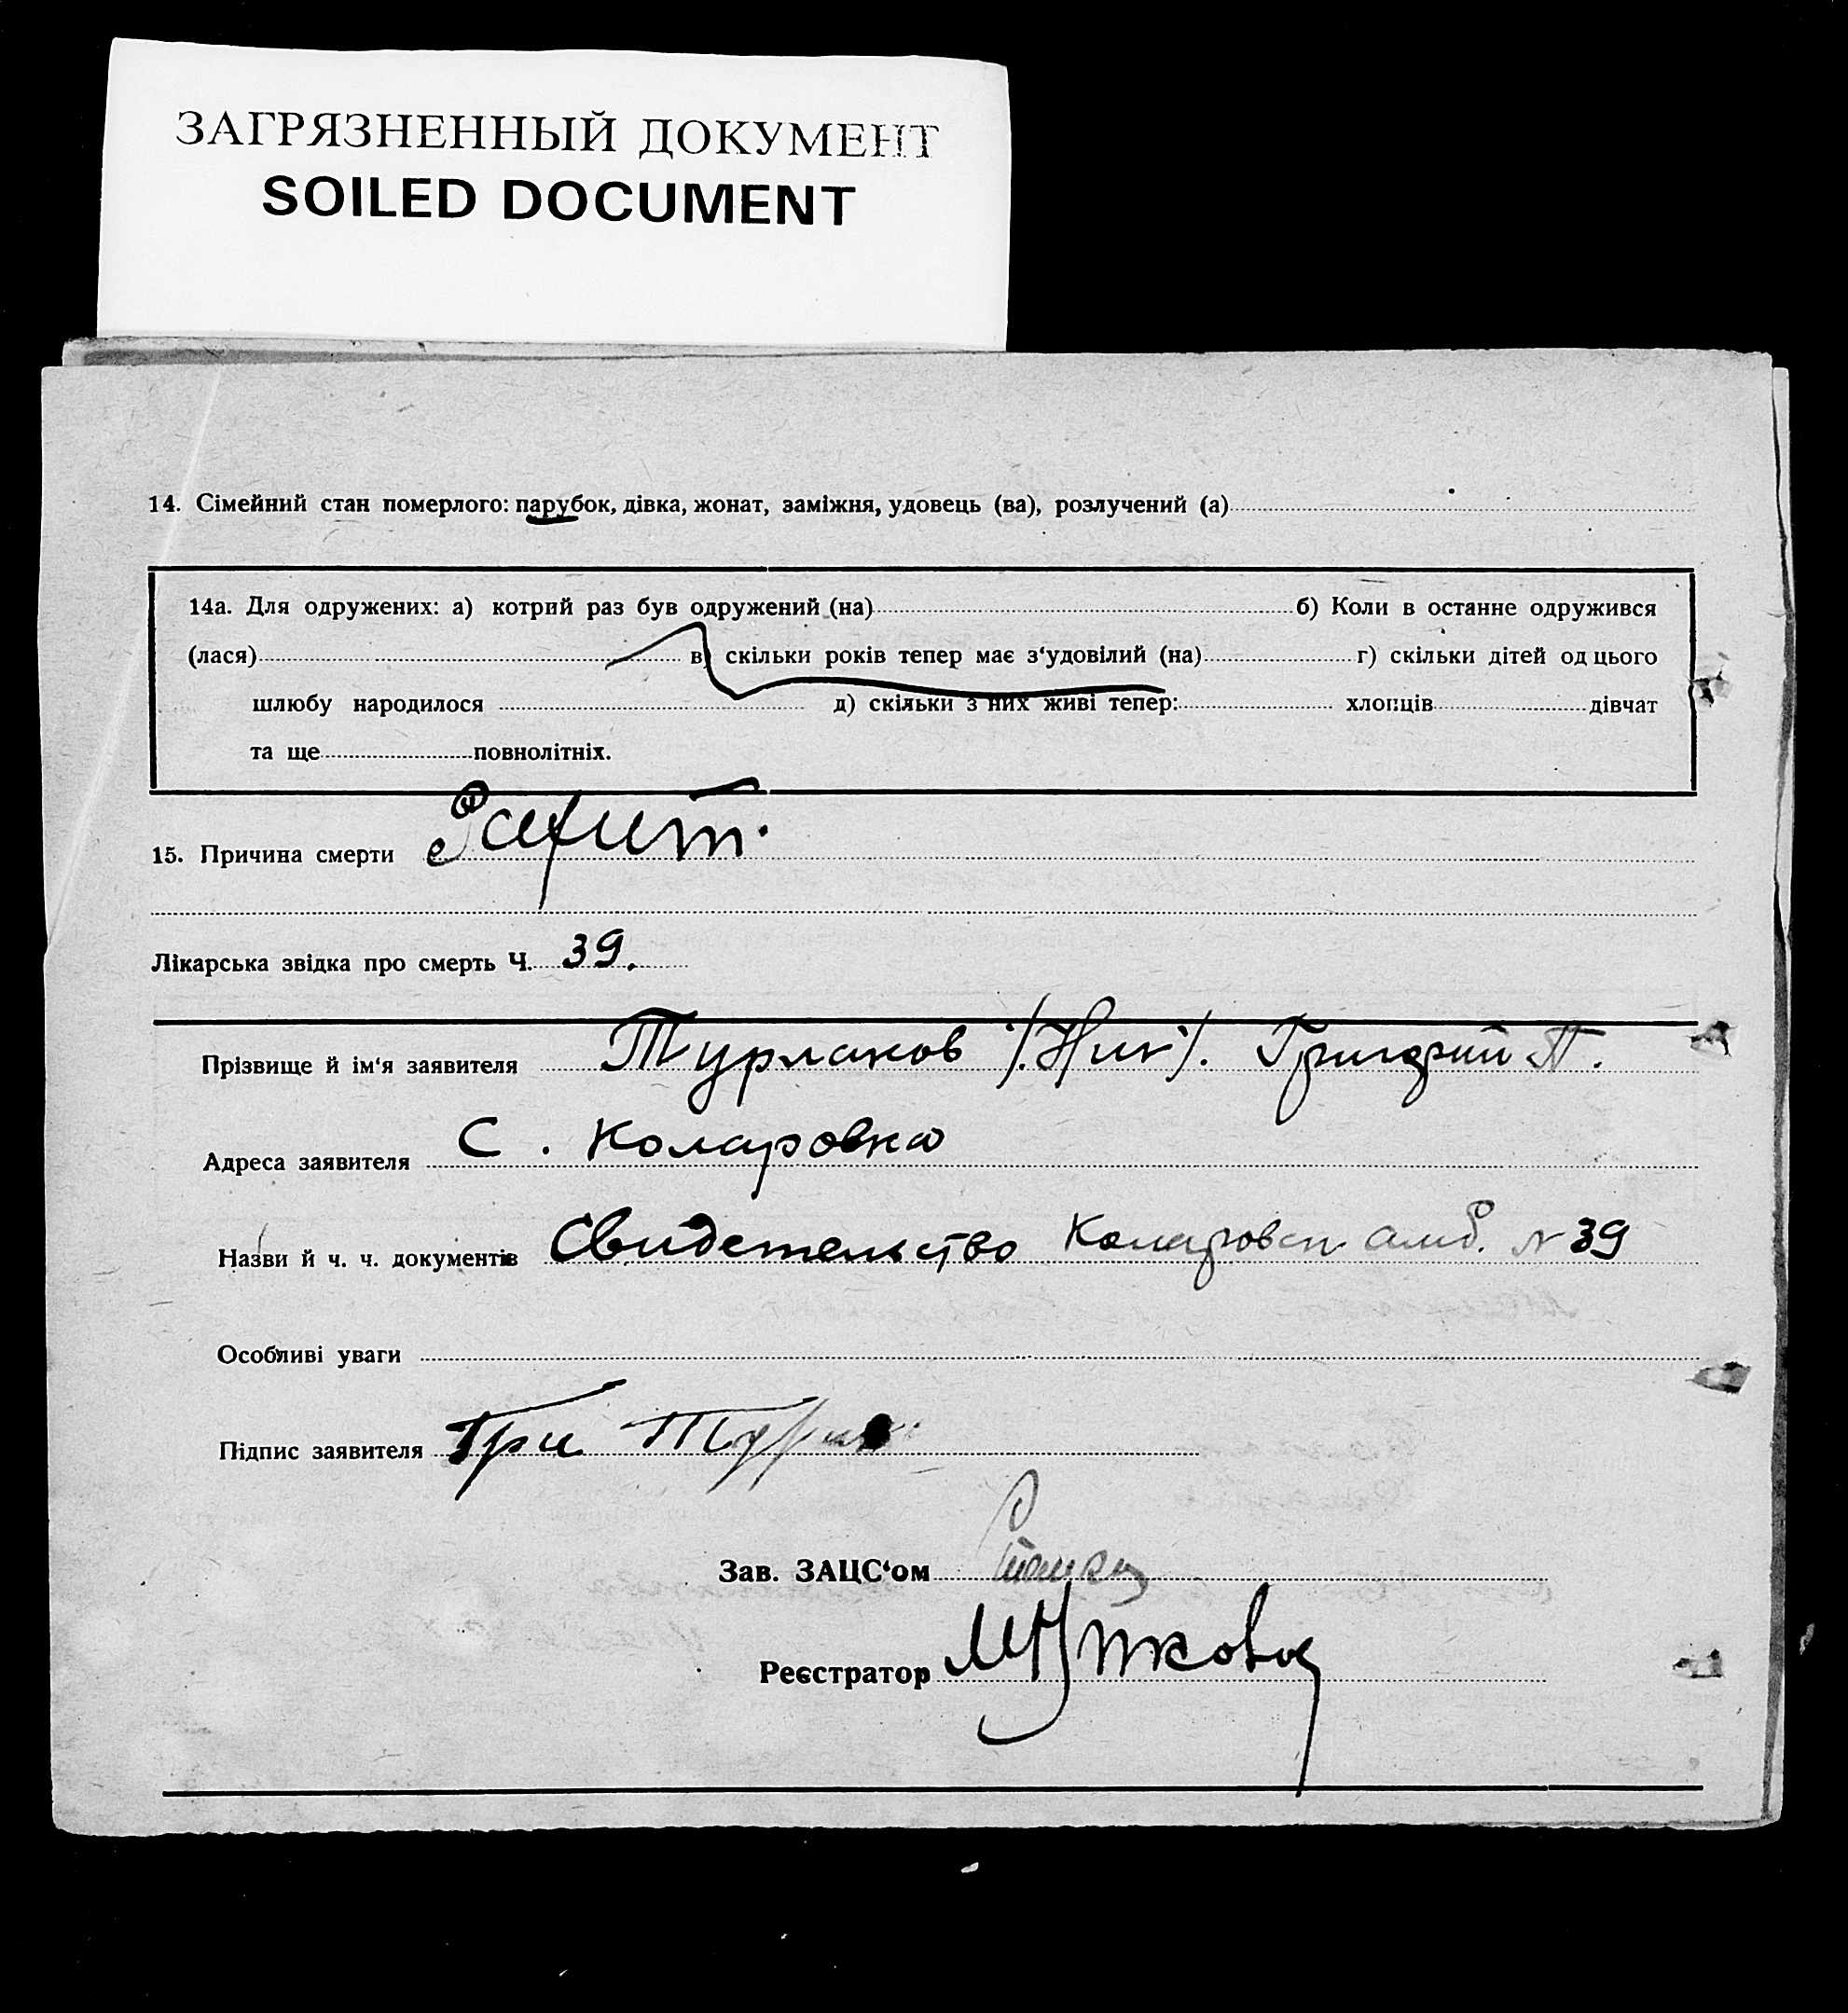 ЗАГРЯЗНЕННЫЙ ДОКУМЕНТ
SOILED DOCUMENT
14. Сімейний стан померлого: парубок, дівка, жонат, заміжня, удовець (ва), розлучений (а)
14а. Для одружених: а) котрий раз був одружений (на) б) Коли в останне одружився
(лася) в) скільки років тепер має з‘удовілий (на) г) скільки дітей од цього
шлюбу народилося д) скільки з них живі тепер: хлопців дівчат
та ще повнолітніх.
15. Причина смерти Рахит.
Лікарська звідка про смерть Ч. 39.
Прізвище й ім‘я заявителя Турлаков /.Ник/. Григорий П.
Адреса заявителя С. Коларовка
Назви й ч. ч. документів Свидетельство Коларовск амб. N 39
Особливі уваги
Підпис заявителя Гри
Зав. ЗАЦС‘ом
Реєстратор